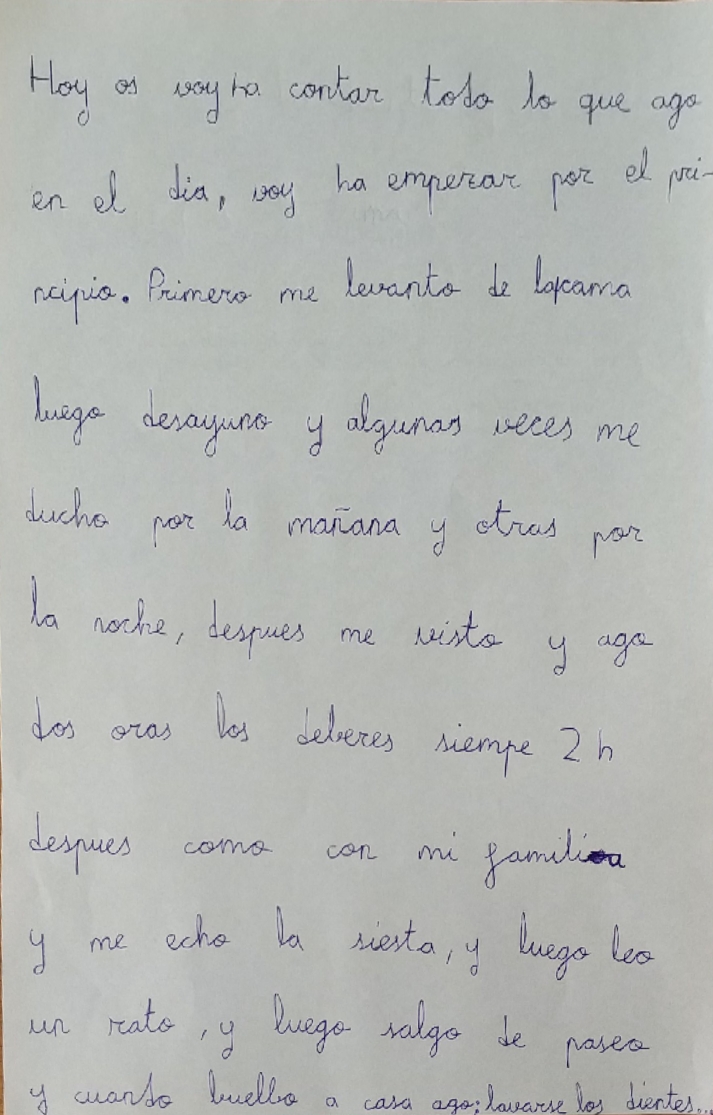 Hoy os voy ha contar todo lo que ago
en el dia, voy ha empezar por el pri-
ncipio. Primero me levanto de la cama
luego desayuno y algunas veces me
ducho por la mañana y otras por
la noche, despues me visto y ago
dos oras los deberes siempe 2 h
despues como con mi familia
y me echo la siesta, y luego leo
un rato, y luego salgo de paseo
y cuando buelbo a casa ago: lavarse los dientes...